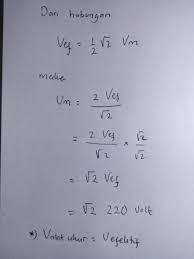 Dari hubungan
Vef = 1/2 √2 Vm
maka
Vm = 2 Vef / √2
= 2 Vef / √2 × √2 / √2
= √2 Vef
= √2 220 Volt
*) Volat ukur = Vefektif